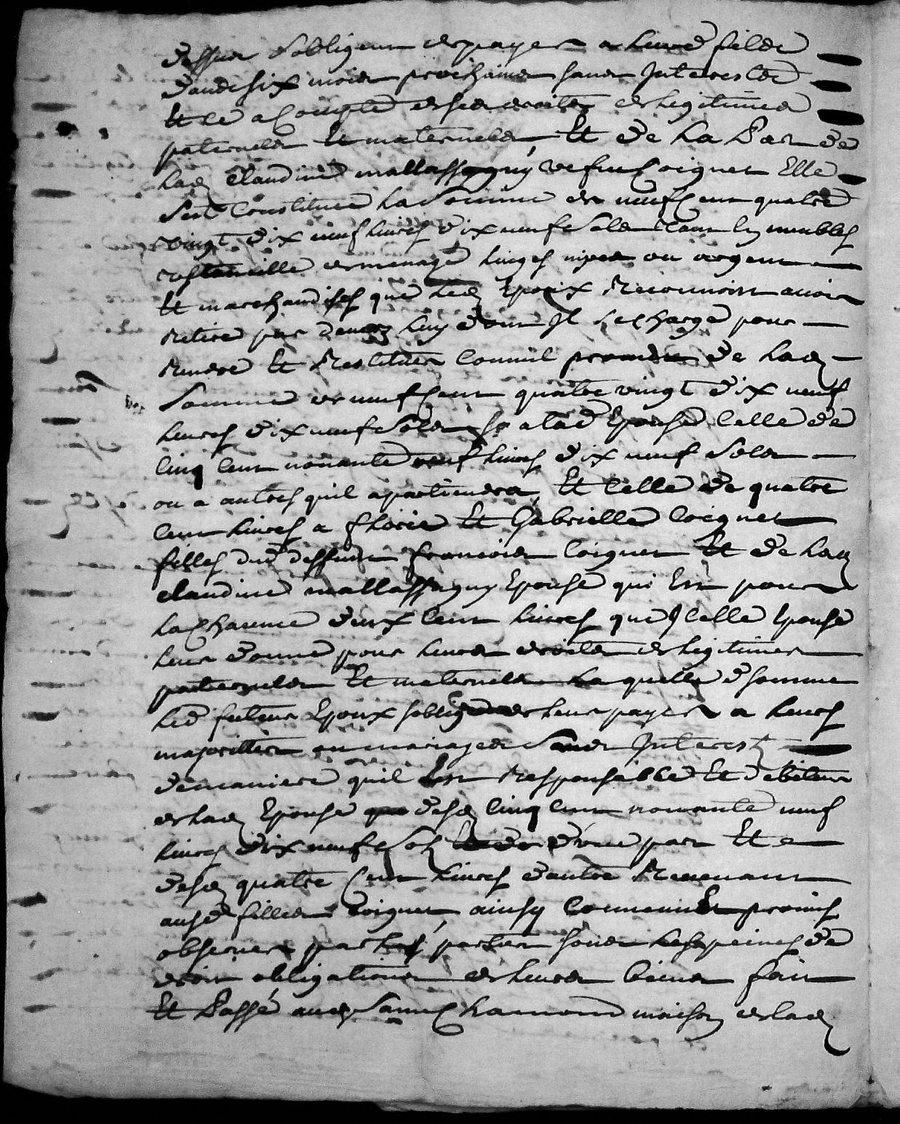 dessus sobligent de payer a leurd filde
dans six mois prochains sans Interestz
Et ce a Compte de ses droits de legitimes
paternels Et maternels Et de La Part de
Lad Claudine mallassagny veufve Coignet Elle
sest Constitue La somme de neuf Cent quatre
vingt dix neuf livres dix neuf sols tant En meubles
de menage linges or ou argent
Et marchandises que Led Epoux Reconnoist avoir
Retire par devers luy dont Il se charge pour
Rendre Et Restituer Comme promis de Lad
Somme de neuf Cent quatre vingt dix neuf
livres dix neuf sols a lad Epouse Celle de
Cinq Cent nonante neuf livres dix neuf sols
ou a autres quil apartiendra Et Celle de quatre
Cent livres a fleurie Et Gabrielle Coignet
filles dud deffunt francois Coignet Et de Lad
Claudine mallassagny Epouse qui Est pour
La Chacune deux Cent livres que Icelle Epouse
leur donne pour leurs droits de legitimes
paternels Et maternels La quelle somme
Led futur Epoux soblige de leur payer a leurs
majorittes ou mariages sans Interest
de maniere quil Est Responsable Et debiteur
de Lad Epouse desd Cinq Cent nonante neuf
livres dix neuf sols dune part Et
desd quatre Cent livres dautre Revenant
ausd filles Coignet ainsy Convenu Et promis
observer par les parties sous les peines de
droit obligations de leurs biens fait
Et Passé aud Saint Chamond maison de lad